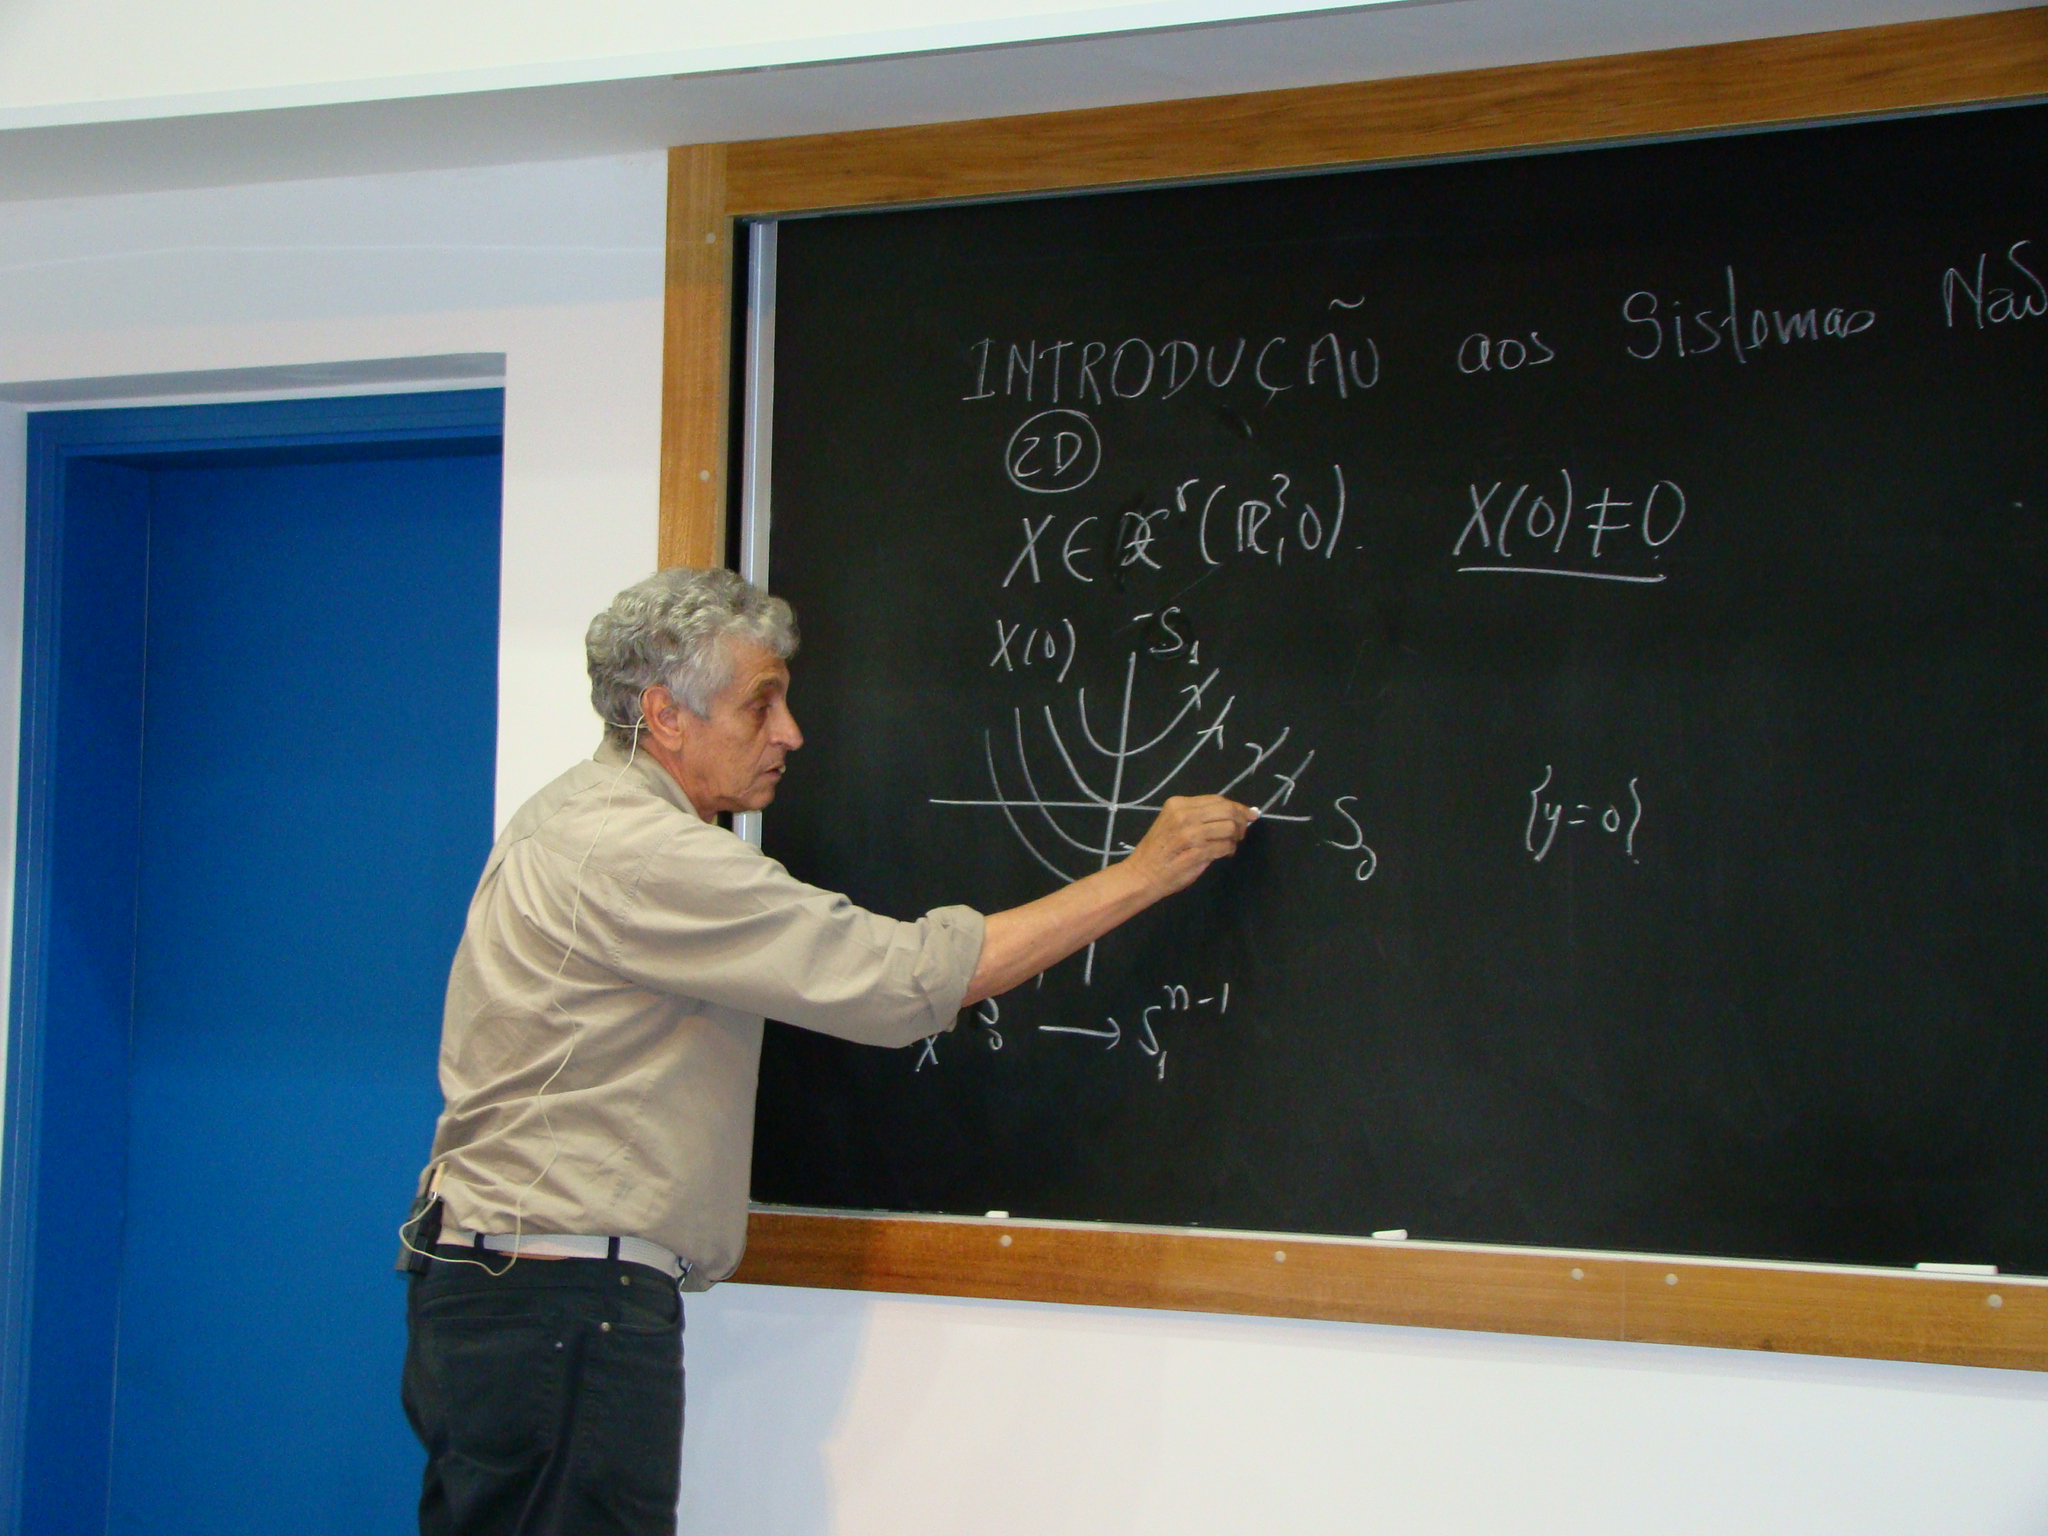 INTRODUÇÃO aos Sistemas Não
2D
X ∈ 𝔛^r (ℝ², 0). X(0) ≠ 0
X(0) S₁
S₀ {y=0}
→ S₁^{n-1}